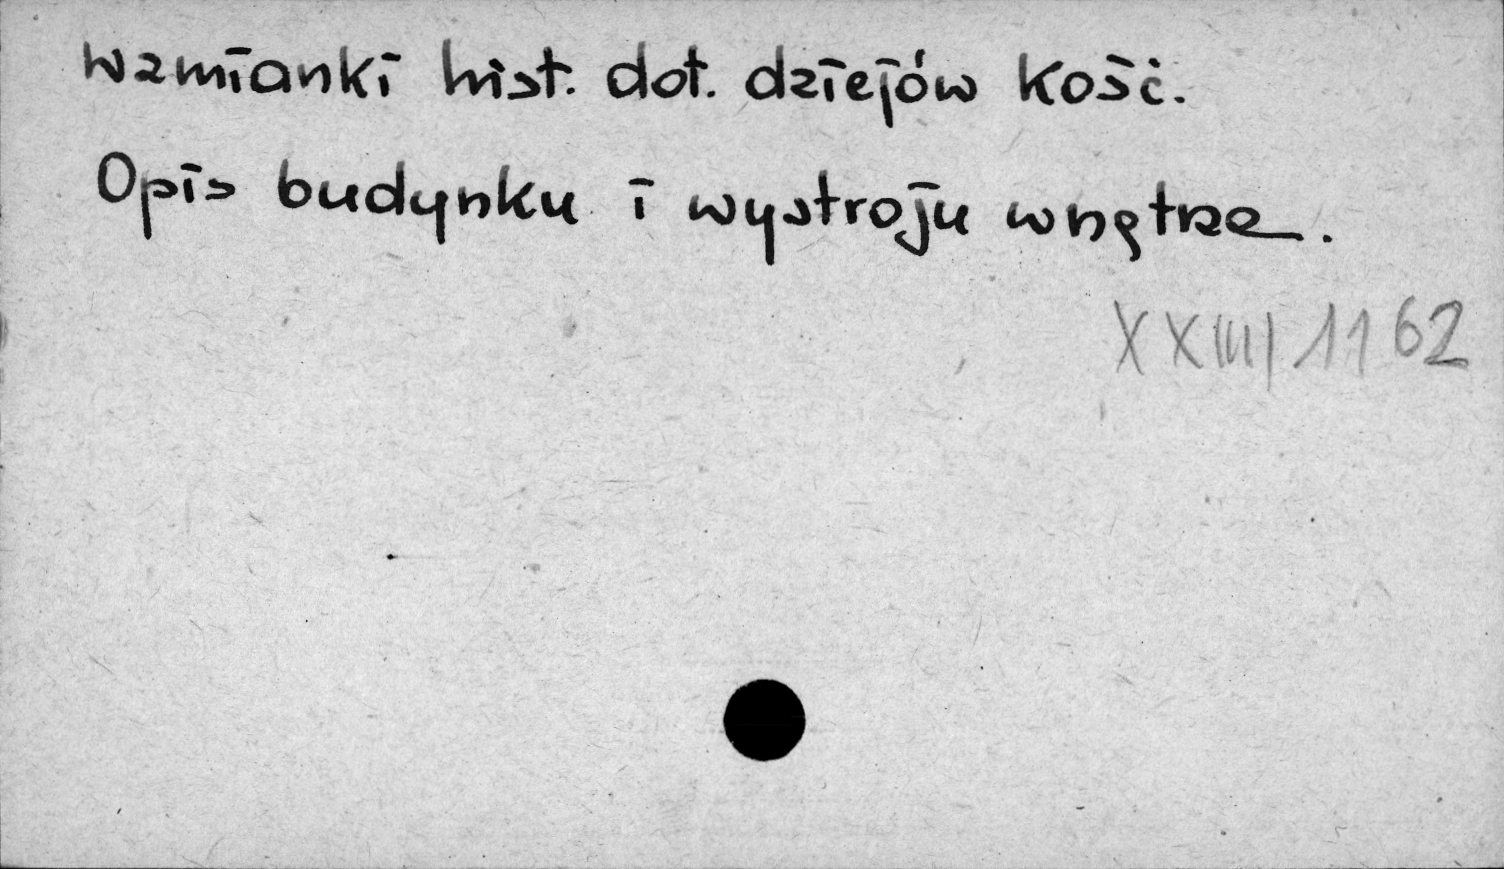 Wzmianki hist. dot. dziejów kośc.
Opis budynku i wystroju wnętrz.
XXIII/1162